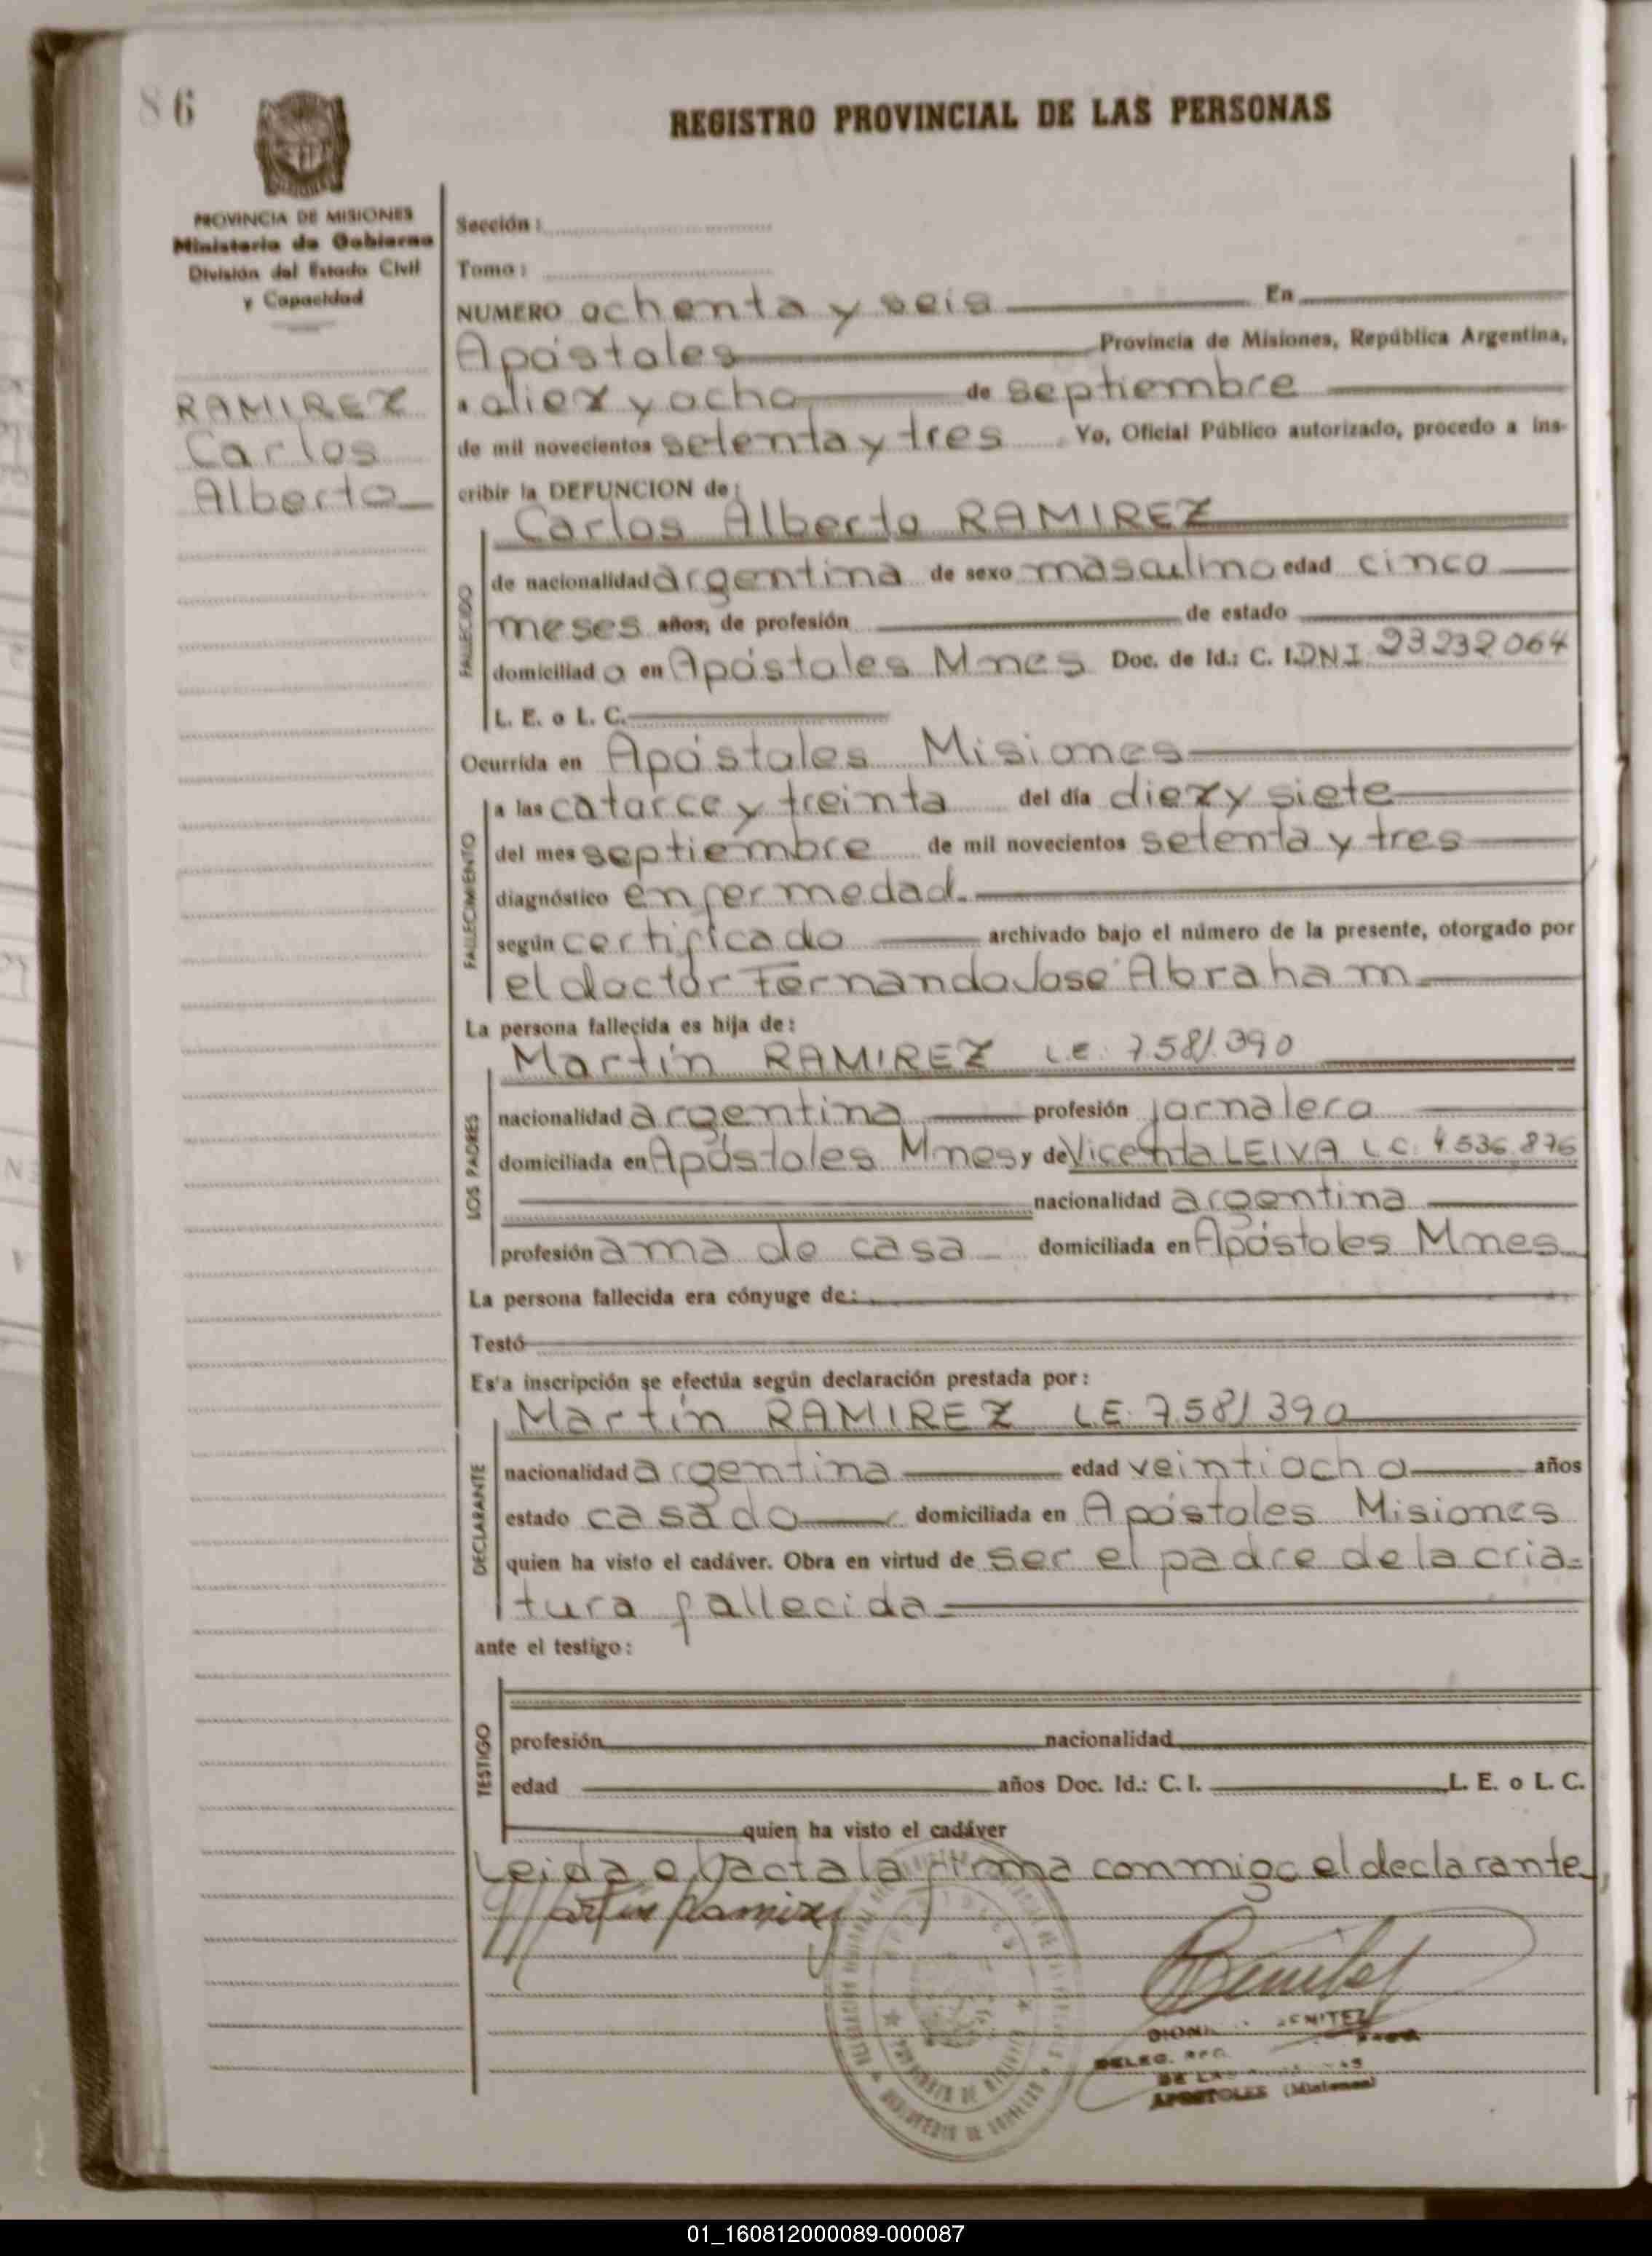 86
REGISTRO PROVINCIAL DE LAS PERSONAS
PROVINCIA DE MISIONES
Ministerio de Gobierno
División del Estado Civil
y Capacidad
RAMIREZ
Carlos
Alberto
Sección:
Tomo:
NUMERO ochenta y seis En
Apóstoles Provincia de Misiones, República Argentina,
a diez y ocho de septiembre
de mil novecientos setenta y tres Yo, Oficial Público autorizado, procedo a ins-
cribir la DEFUNCION de:
Carlos Alberto RAMIREZ
FALLECIDO
de nacionalidad argentina de sexo masculino edad cinco
meses años, de profesión de estado
domiciliado en Apóstoles Mnes Doc. de Id.: C. I. DNI 23232064
L. E. o L. C.
Ocurrida en Apóstoles Misiones
FALLECIMIENTO
a las catorce y treinta del día diez y siete
del mes septiembre de mil novecientos setenta y tres
diagnóstico enfermedad.
según certificado archivado bajo el número de la presente, otorgado por
el doctor Fernando José Abraham
La persona fallecida es hija de:
Martín RAMIREZ L.E. 7.581.390
LOS PADRES
nacionalidad argentina profesión jornalero
domiciliada en Apóstoles Mnes y de Vicenta LEIVA L C. 4 536.876
nacionalidad argentina
profesión ama de casa domiciliada en Apóstoles Mnes
La persona fallecida era cónyuge de:
Testó
Es'a inscripción se efectúa según declaración prestada por:
Martín RAMIREZ L.E. 7.581 390
DECLARANTE
nacionalidad argentina edad veintiocho años
estado casado domiciliada en Apóstoles Misiones
quien ha visto el cadáver. Obra en virtud de ser el padre de la cria=
tura fallecida
ante el testigo:
TESTIGO
profesión nacionalidad
edad años Doc. Id.: C. I. L. E. o L. C.
quien ha visto el cadáver
Leida el acta la firma conmigo el declarante,
Martin Ramirez
BENITEZ
DELEG.
DE LAS
APOSTOLES (Misiones)
01_160812000089-000087